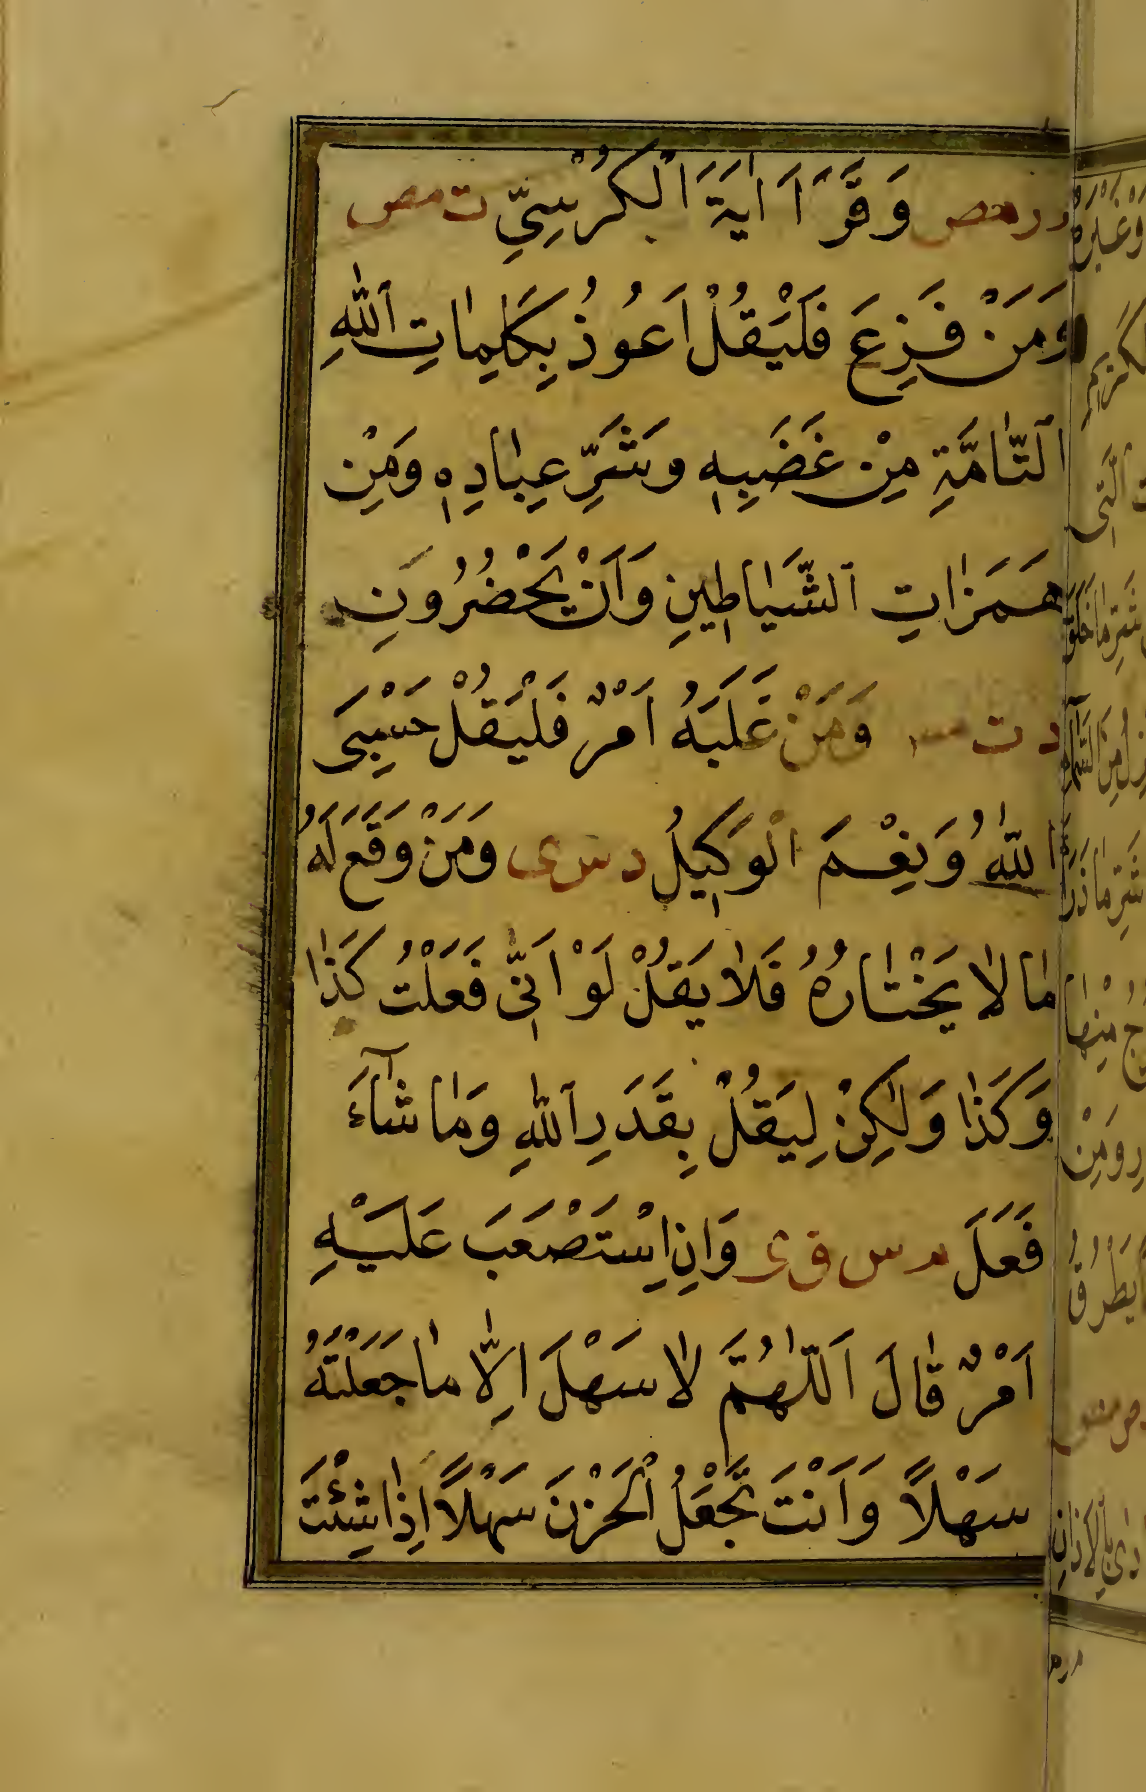 ر مص وَقَرَأَ اٰيَةَ الْكُرْسِيِّ ت مص
وَمَنْ فَزِعَ فَلْيَقُلْ اَعُوذُ بِكَلِمٰاتِ اللّٰهِ
التّٰامَّةِ مِنْ غَضَبِهٖ وَشَرِّ عِبٰادِهٖ وَمِنْ
هَمَزٰاتِ الشَّيٰاطِينِ وَاَنْ يَحْضُرُونِ
د ت س وَمَنْ غَلَبَهُ اَمْرٌ فَلْيَقُلْ حَسْبِىَ
اللّٰهُ وَنِعْمَ الْوَكِيلُ د س ى وَمَنْ وَقَعَ لَهُ
مٰا لٰا يَخْتٰارُهُ فَلٰا يَقُلْ لَوْ اَنِّى فَعَلْتُ كَذٰا
وَكَذٰا وَلٰكِنْ لِيَقُلْ بِقَدَرِ اللّٰهِ وَمٰا شٰآءَ
فَعَلَ م س ق ى وَاِنِ اسْتَصْعَبَ عَلَيْهِ
اَمْرٌ قٰالَ اَللّٰهُمَّ لٰا سَهْلَ اِلّٰا مٰا جَعَلْتَهُ
سَهْلًا وَاَنْتَ تَجْعَلُ الْحَزْنَ سَهْلًا اِذٰا شِئْتَ